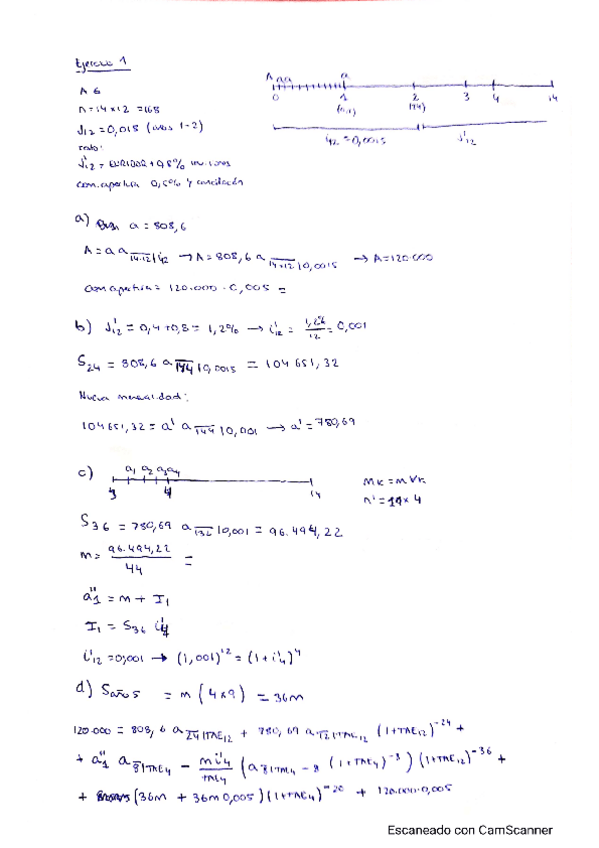 Ejercicio 1
A a a a
0 1 2 3 4 14
A 6
n = 14 x 12 = 168
J12 = 0,018 (años 1-2)
i12 = 0,0015 J'12
resto:
J'12 = EURIBOR + 0,8%
com. apertura 0,5% y cancelación
a) a = 808,6
A = a a 14·12| i12 → A = 808,6 a 14x12| 0,0015 → A = 120.000
Com apertura = 120.000 · 0,005 =
b) J'12 = 0,4 + 0,8 = 1,2% → i'12 = 1,2% / 12 = 0,001
S24 = 808,6 a 144| 0,0015 = 104 651,32
Nueva mensualidad:
104651,32 = a' a 144| 0,001 → a' = 780,69
c) a1 a2 a3 a4
3 4 14
MK = m VK
n' = 11 x 4
S36 = 780,69 a 132| 0,001 = 96.494,22
m = 96.494,22 / 44 =
a''1 = m + I1
I1 = S36 i'4
i'12 = 0,001 → (1,001)^12 = (1 + i'4)^4
d) Saño 5 = m (4 x 9) = 36m
120.000 = 808,6 a 24| TAE12 + 780,69 a 12| TAE12 (1+TAE12)^-24 +
+ a''1 a 8| TAE4 - m i'4 / TAE4 (a 8| TAE4 - 8 (1+TAE4)^-8) (1+TAE12)^-36 +
+ (36m + 36m 0,005) (1+TAE4)^-20 + 120.000·0,005
Escaneado con CamScanner